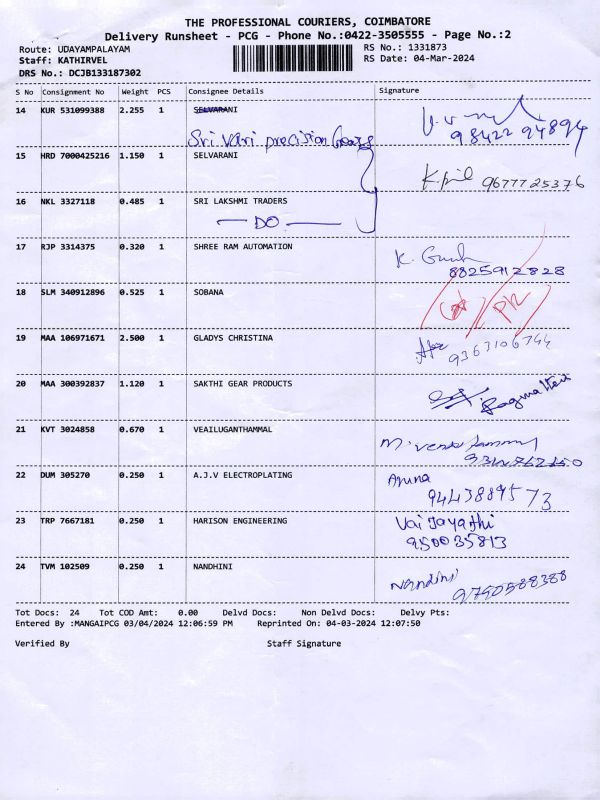 THE PROFESSIONAL COURIERS, COIMBATORE
Delivery Runsheet - PCG - Phone No.:0422-3505555 - Page No.:2
Route: UDAYAMPALAYAM RS No.: 1331873
Staff: KATHIRVEL RS Date: 04-Mar-2024
DRS No.: DCJB133187302
S No Consignment No Weight PCS Consignee Details Signature
14 KUR 531099388 2.255 1 SELVARANI
Sri Vari precision Gears 98422 94894
15 HRD 7000425216 1.150 1 SELVARANI
9677725376
16 NKL 3327118 0.485 1 SRI LAKSHMI TRADERS
DO
17 RJP 3314375 0.320 1 SHREE RAM AUTOMATION
8825912828
18 SLM 340912896 0.525 1 SOBANA
19 MAA 106971671 2.500 1 GLADYS CHRISTINA
9363106744
20 MAA 300392837 1.120 1 SAKTHI GEAR PRODUCTS
21 KVT 3024858 0.670 1 VEAILUGANTHAMMAL
22 DUM 305270 0.250 1 A.J.V ELECTROPLATING Aruna
9443889573
23 TRP 7667181 0.250 1 HARISON ENGINEERING
950035813
24 TVM 102509 0.250 1 NANDHINI Nandini
9790588388
Tot Docs: 24 Tot COD Amt: 0.00 Delvd Docs: Non Delvd Docs: Delvy Pts:
Entered By :MANGAIPCG 03/04/2024 12:06:59 PM Reprinted On: 04-03-2024 12:07:50
Verified By Staff Signature